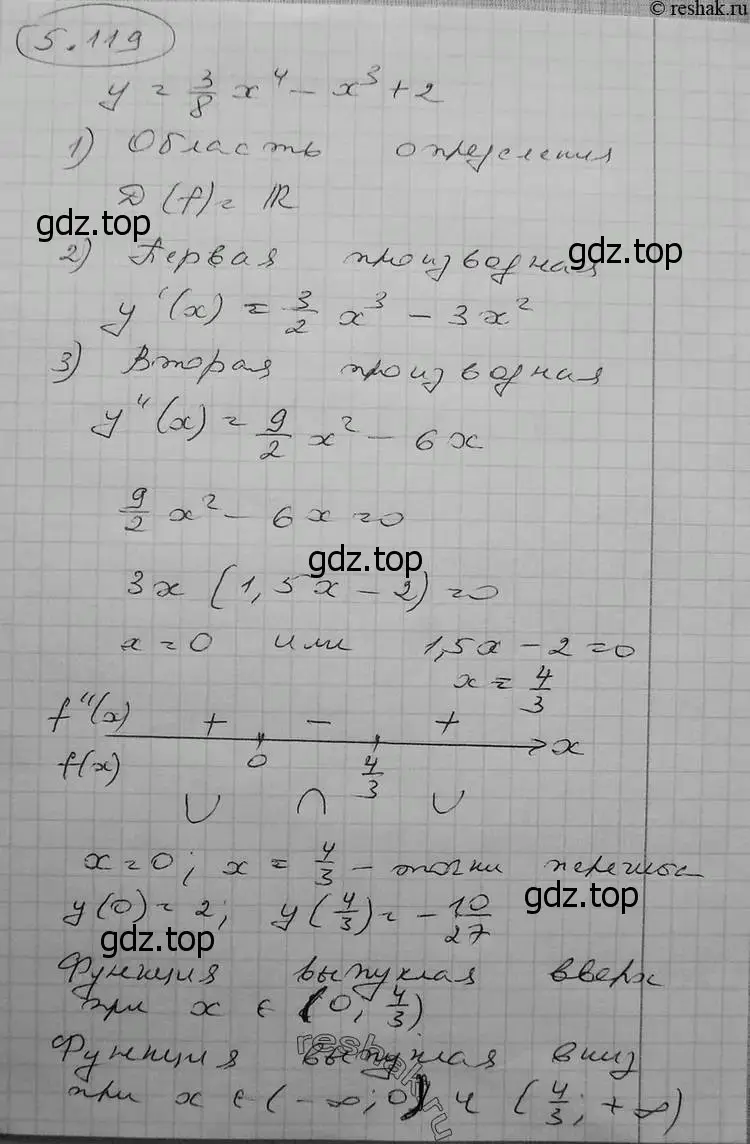 © reshak.ru
5.119
y = 3/8 x⁴ - x³ + 2
1) Область определения
D(f) = ℝ
gdz.top
gdz.top
2) Первая производная
y'(x) = 3/2 x³ - 3x²
3) Вторая производная
y''(x) = 9/2 x² - 6x
9/2 x² - 6x = 0
gdz.top
3x (1,5x - 2) = 0
x = 0 или 1,5x - 2 = 0
x = 4/3
f''(x) + - +
f(x) 0 4/3 x
∪ ∩ ∪
x = 0; x = 4/3 - точки перегиба
y(0) = 2; y(4/3) = - 10/27
gdz.top
gdz.top
Функция выпуклая вверх
при x ∈ (0; 4/3)
reshak.ru
Функция выпуклая вниз
при x ∈ (-∞; 0) и (4/3; +∞)